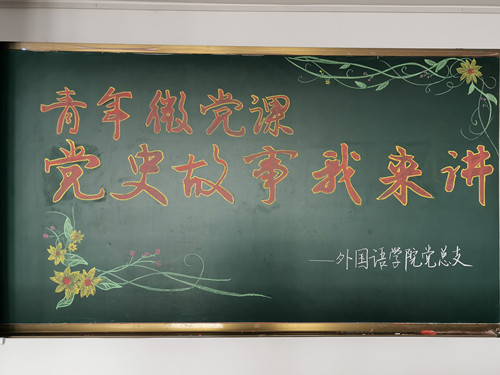 青年微党课
党史故事我来讲
——外国语学院党总支